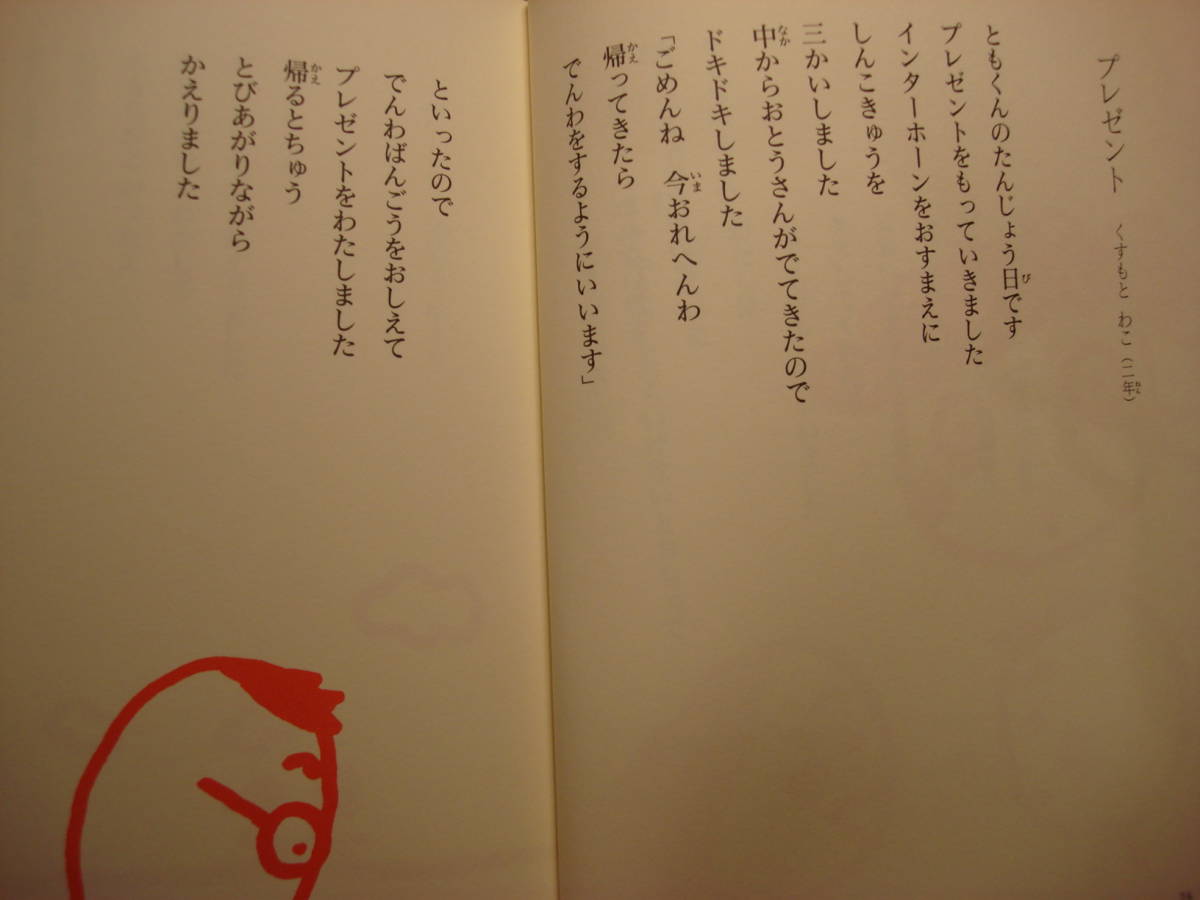 プレゼント
くすもと わこ（二年）
ともくんのたんじょう日です
プレゼントをもっていきました
インターホーンをおすまえに
しんこきゅうを
三かいしました
中からおとうさんがでてきたので
ドキドキしました
「ごめんね　今おれへんわ
帰ってきたら
でんわをするようにいいます」
といったので
でんわばんごうをおしえて
プレゼントをわたしました
帰るとちゅう
とびあがりながら
かえりました